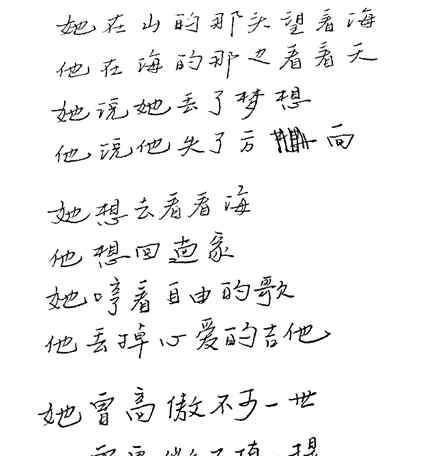 她在山的那头望着海
他在海的那边看着天
她说她丢了梦想
他说他失了方向
她想去看看海
他想回家
她哼着自由的歌
他丢掉心爱的吉他
她曾高傲不可一世